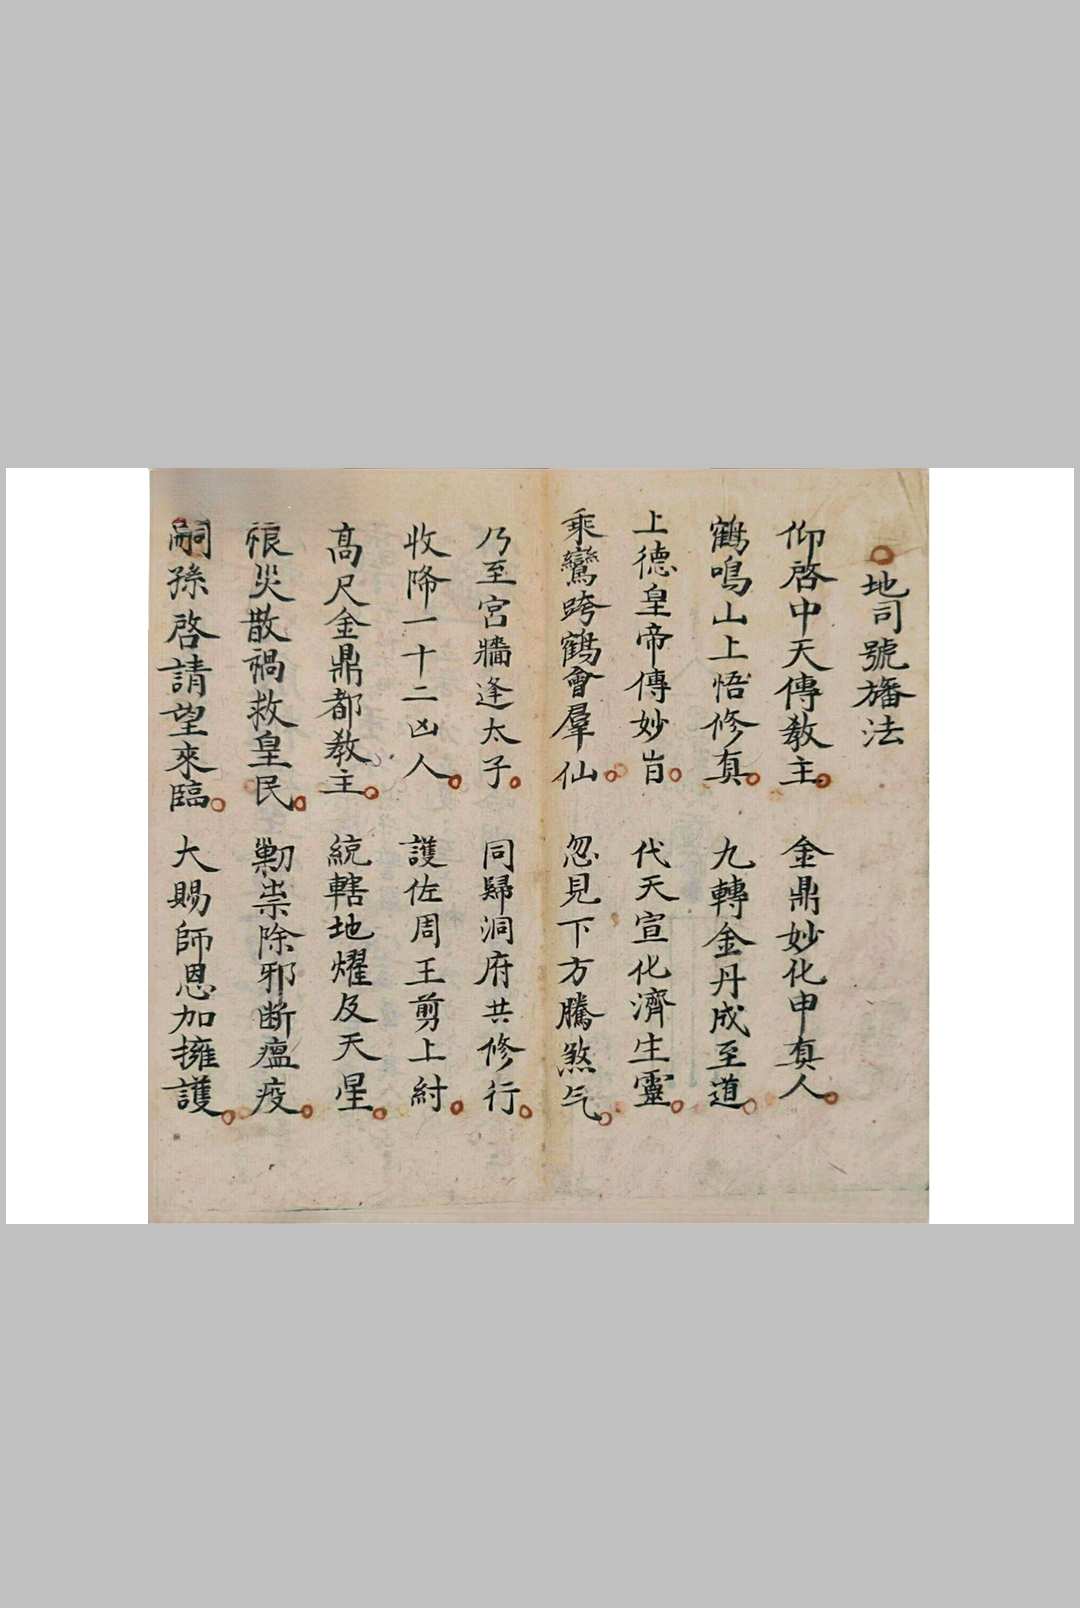 地司號旛法
仰啓中天傳教主 金鼎妙化申真人
鶴鳴山上悟修真 九轉金丹成至道
上德皇帝傳妙旨 代天宣化濟生靈
乘鸞跨鶴會羣仙 忽見下方騰煞气
乃至宮牆逢太子 同歸洞府共修行
收降一十二凶人 護佐周王剪上紂
高尺金鼎都教主 統轄地耀及天星
災散禍救皇民 勦祟除邪断瘟疫
嗣孫啓請望來臨 大賜師恩加擁護